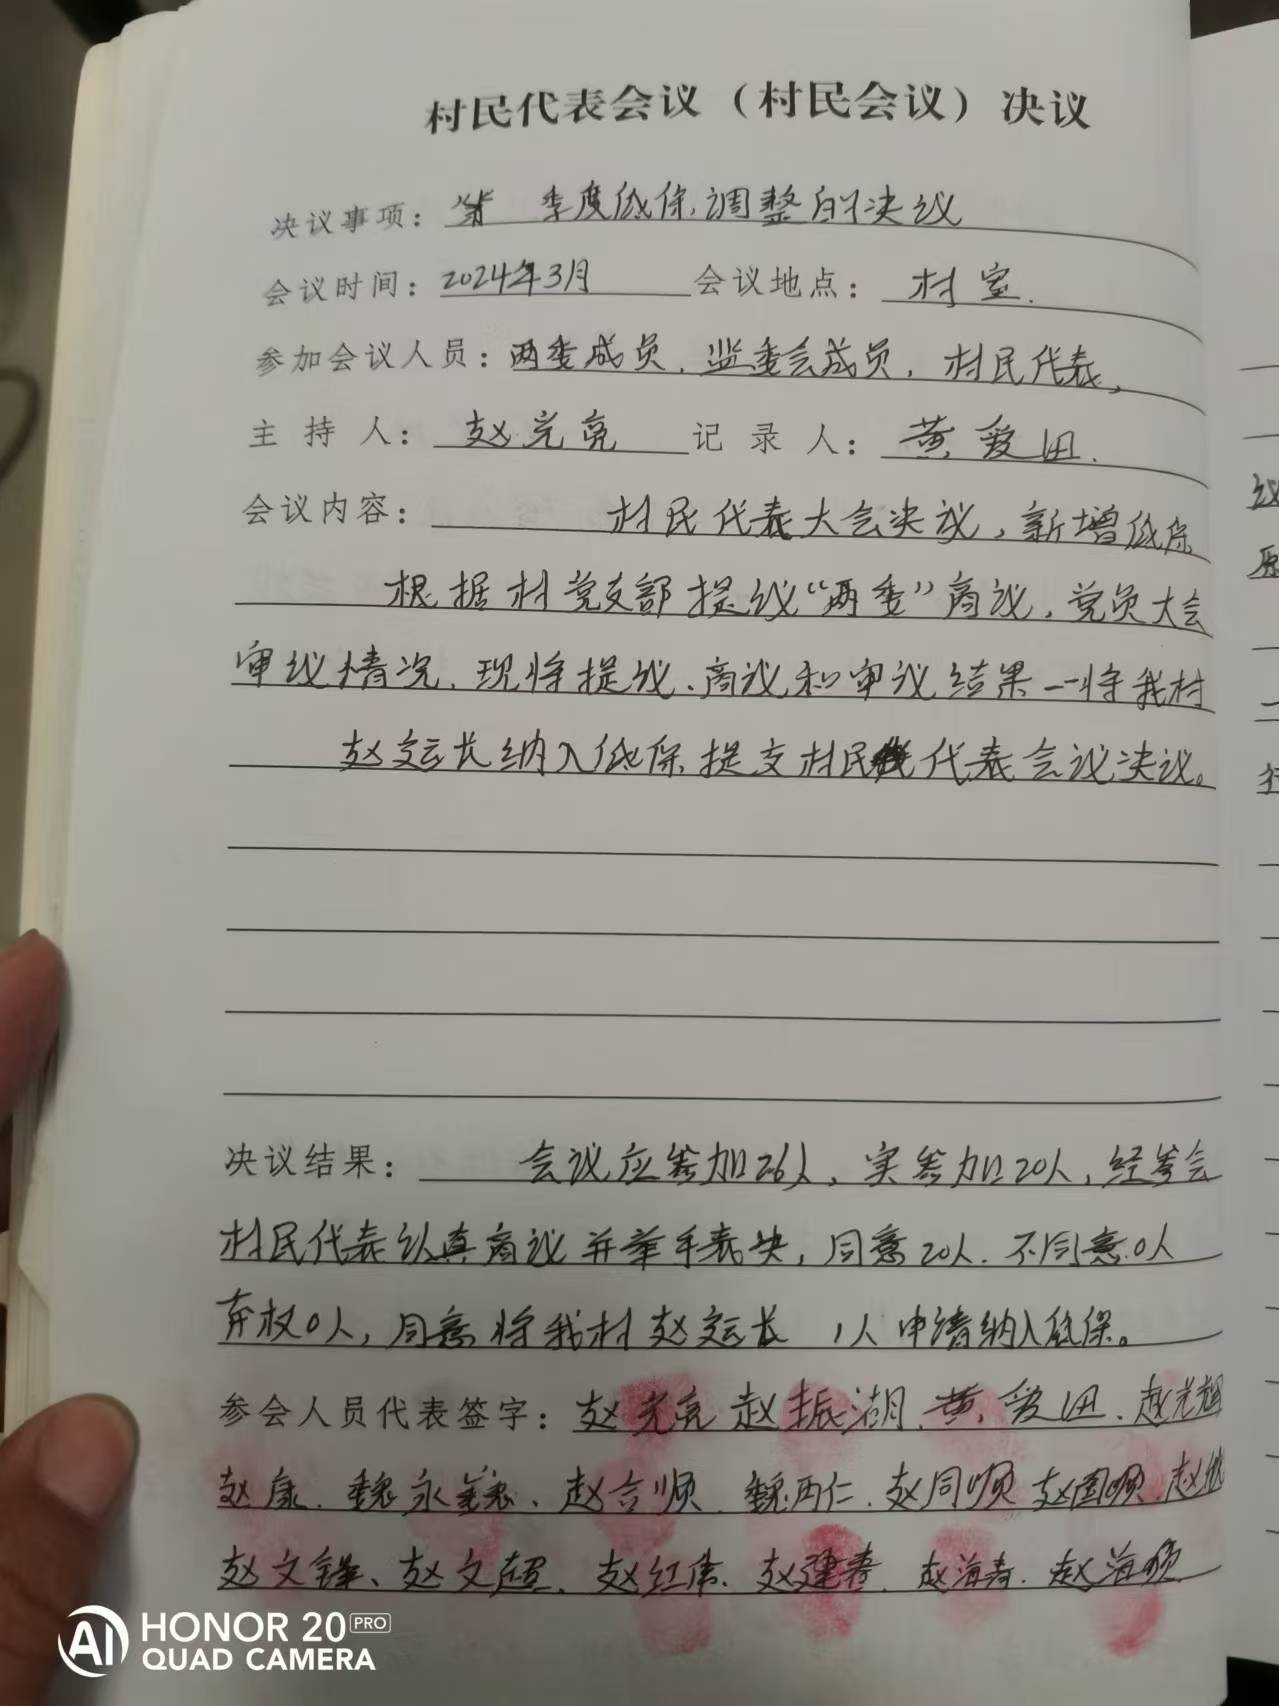 村民代表会议（村民会议）决议
决议事项：第 季度低保调整的决议
会议时间：2024年3月 会议地点：村室.
参加会议人员：两委成员、监委会成员，村民代表，
主持人：赵光亮 记录人：黄爱田.
会议内容： 村民代表大会决议，新增低保
根据村党支部提议“两委”商议，党员大会
审议情况，现将提议、商议和审议结果一将我村
赵运长纳入低保提交村民代表会议决议。
决议结果： 会议应参加26人，实参加20人，经参会
村民代表认真商议并举手表决，同意20人.不同意0人
弃权0人，同意将我村赵运长 1人申请纳入低保。
参会人员代表签字：赵光亮 赵振湖.黄爱田.赵光辉
赵康.魏永 、赵合顺.魏丙仁.赵同顺 赵国顺.赵
赵文锋、赵文超、赵红伟.赵建寿.赵海寿.赵海顺
HONOR 20 PRO
AI QUAD CAMERA